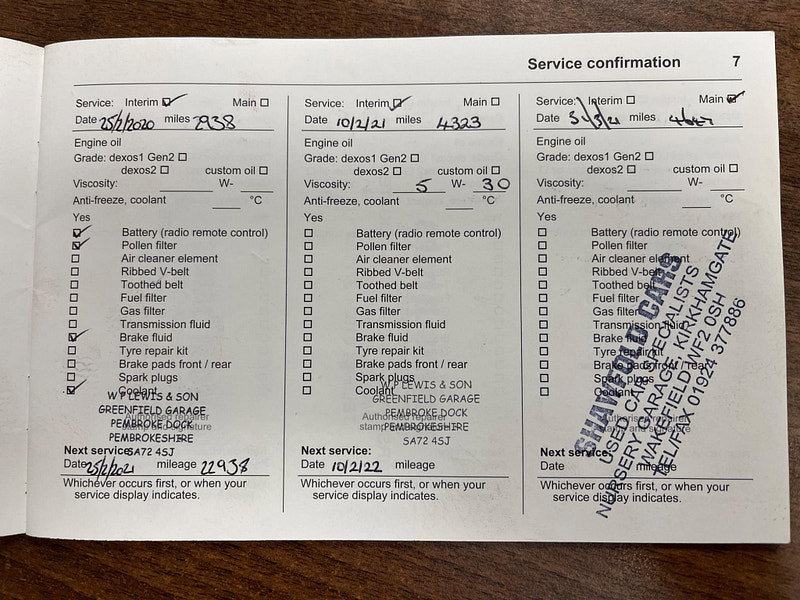 Service confirmation 7
Service: Interim Main
Date 25/2/2020 miles 2938
Engine oil
Grade: dexos1 Gen2
dexos2 custom oil
Viscosity: W-
Anti-freeze, coolant °C
Yes
Battery (radio remote control)
Pollen filter
Air cleaner element
Ribbed V-belt
Toothed belt
Fuel filter
Gas filter
Transmission fluid
Brake fluid
Tyre repair kit
Brake pads front / rear
Spark plugs
Coolant
W P LEWIS & SON
GREENFIELD GARAGE
Authorised repairer
PEMBROKE DOCK
stamp and signature
PEMBROKESHIRE
SA72 4SJ
Next service:
Date 25/2/2021 mileage 22938
Whichever occurs first, or when your
service display indicates.
Service: Interim Main
Date 10/2/21 miles 4323
Engine oil
Grade: dexos1 Gen2
dexos2 custom oil
Viscosity: 5 W- 30
Anti-freeze, coolant °C
Yes
Battery (radio remote control)
Pollen filter
Air cleaner element
Ribbed V-belt
Toothed belt
Fuel filter
Gas filter
Transmission fluid
Brake fluid
Tyre repair kit
Brake pads front / rear
Spark plugs
Coolant
W P LEWIS & SON
GREENFIELD GARAGE
Authorised repairer
PEMBROKE DOCK
stamp and signature
PEMBROKESHIRE
SA72 4SJ
Next service:
Date 10/2/22 mileage
Whichever occurs first, or when your
service display indicates.
Service: Interim Main
Date miles
Engine oil
Grade: dexos1 Gen2
dexos2 custom oil
Viscosity: W-
Anti-freeze, coolant °C
Yes
Battery (radio remote control)
Pollen filter
Air cleaner element
Ribbed V-belt
Toothed belt
Fuel filter
Gas filter
Transmission fluid
Brake fluid
Tyre repair kit
Brake pads front / rear
Spark plugs
Coolant
Authorised repairer
stamp and signature
CARS
USED CAR SPECIALISTS
NURSERY GARAGE, KIRKHAMGATE
WAKEFIELD WF2 0SH
TEL/FAX 01924 377886
Next service:
Date mileage
Whichever occurs first, or when your
service display indicates.